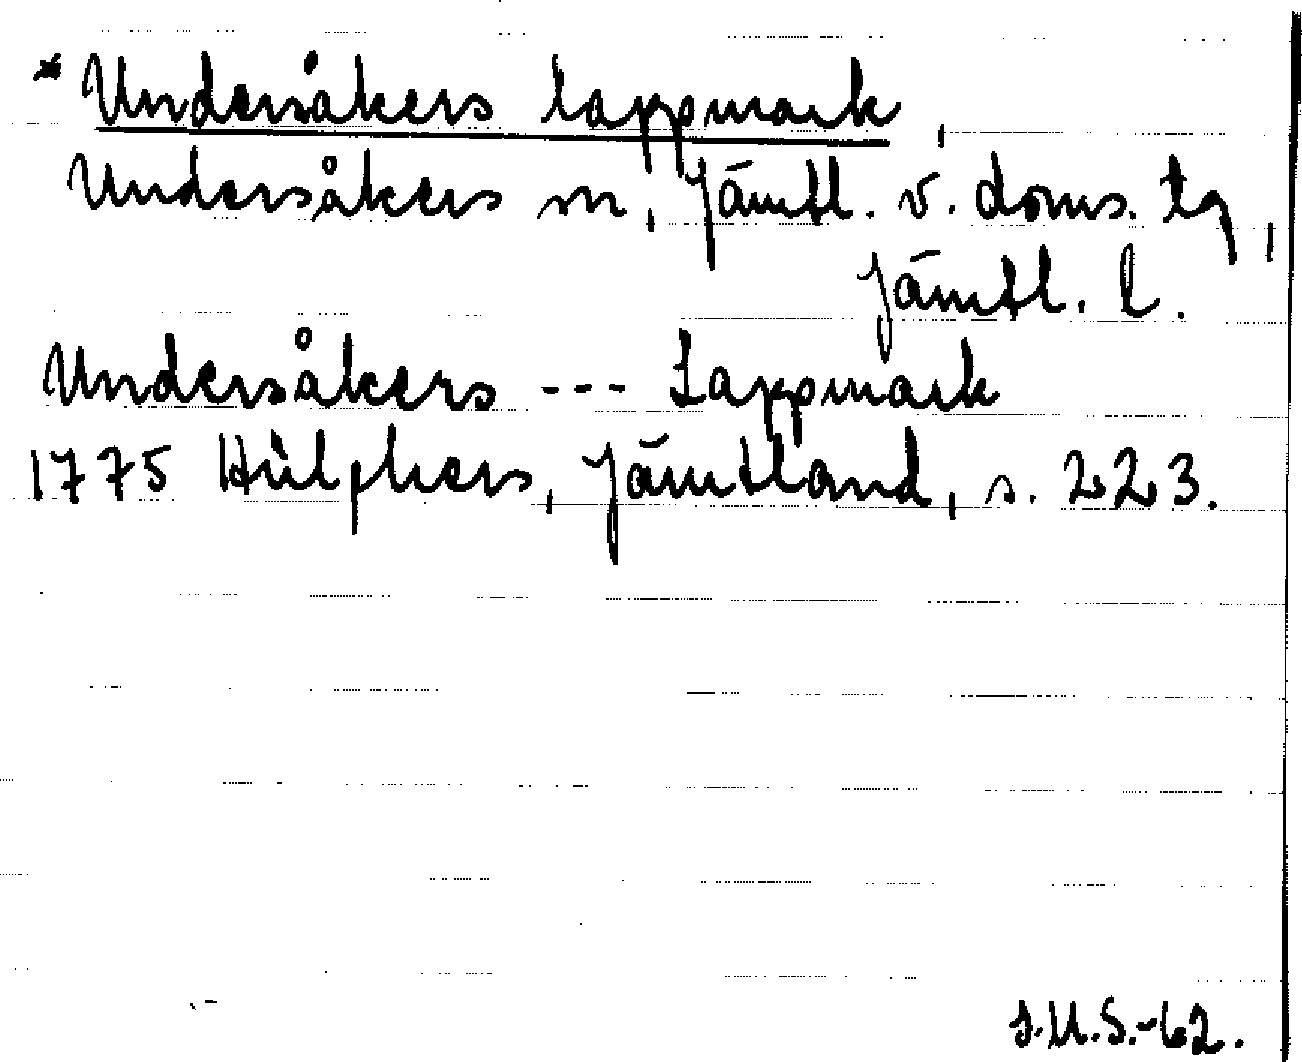 * Undersåkers lappmark,
Undersåkers sn, Jämtl. v. doms. tg,
Jämtl. l.
Undersåkers --- Lappmark
1775 Hülphers, Jämtland, s. 223.
S.U.S.-62.